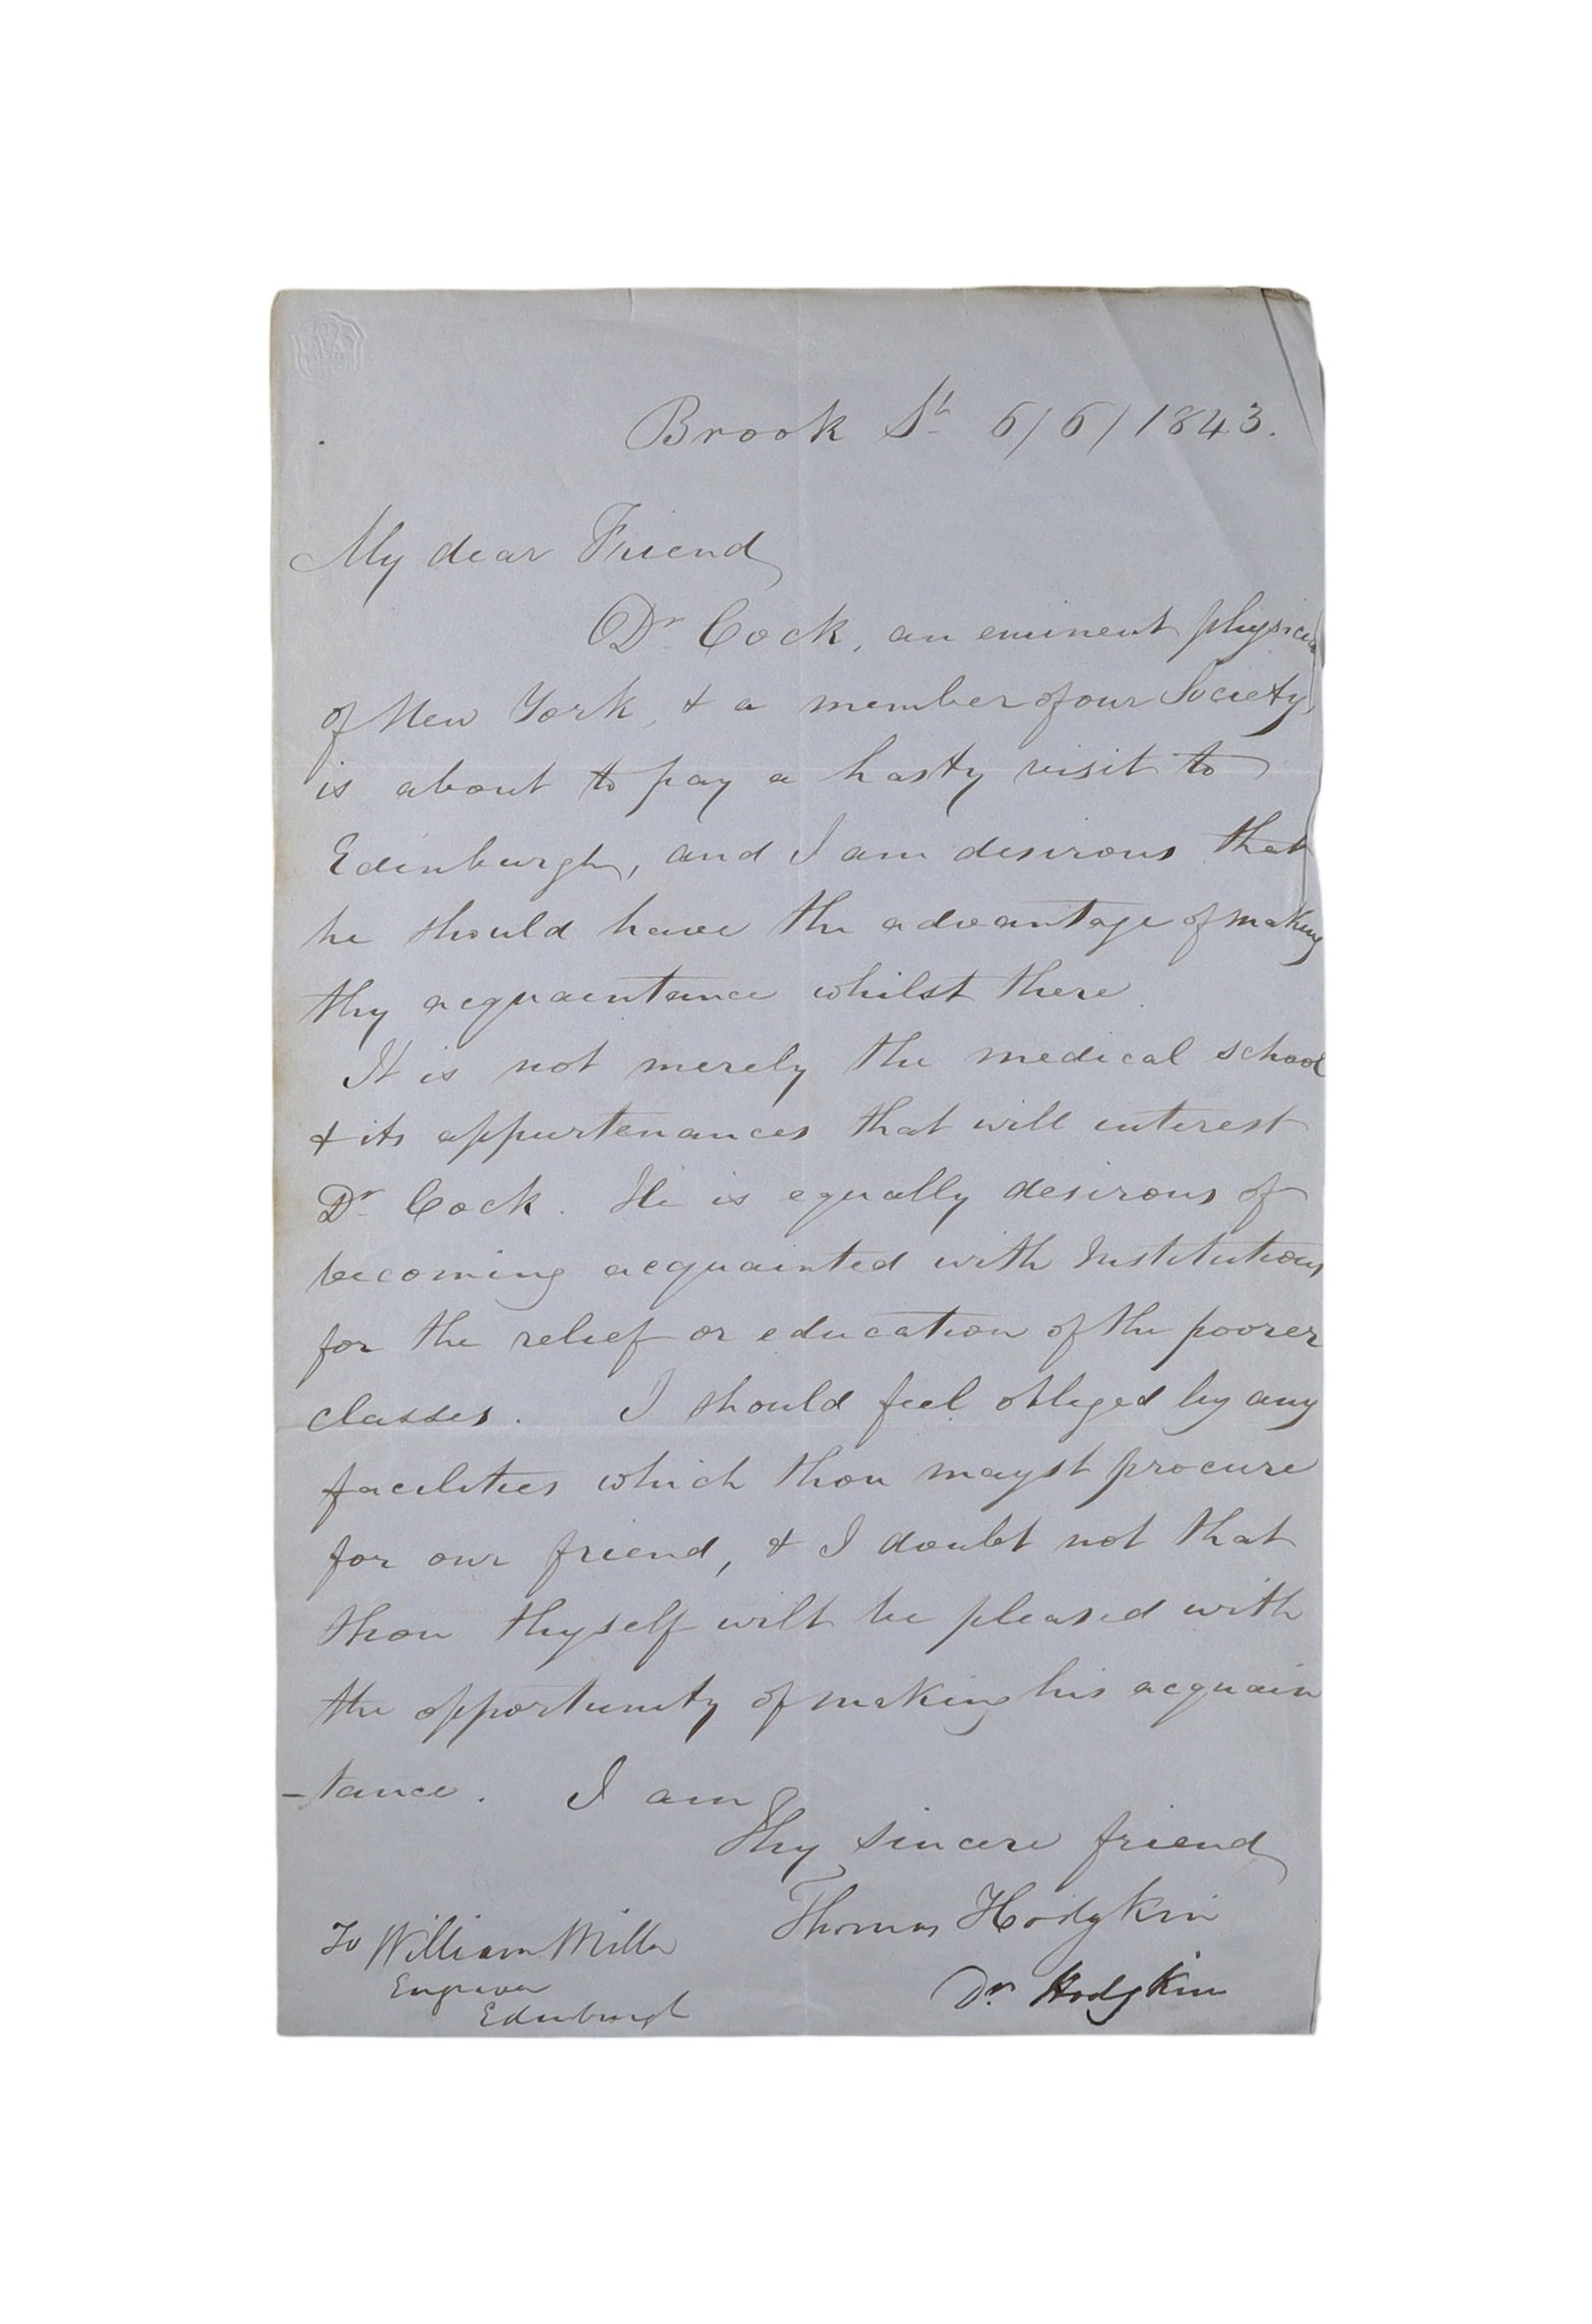 Brook St. 6/6/1843.
My dear Friend
Dr Cock, an eminent physician
of New York, & a member of our Society,
is about to pay a hasty visit to
Edinburgh, and I am desirous that
he should have the advantage of making
thy acquaintance whilst there.
It is not merely the medical school
& its appurtenances that will interest
Dr Cock. He is equally desirous of
becoming acquainted with Institutions
for the relief or education of the poorer
classes. I should feel obliged by any
facilities which thou mayst procure
for our friend, & I doubt not that
thou thyself wilt be pleased with
the opportunity of making his acquain
-tance. I am
Thy sincere friend
Thomas Hodgkin
To William Miller
Engraver
Edinburgh
Dr. Hodgkin